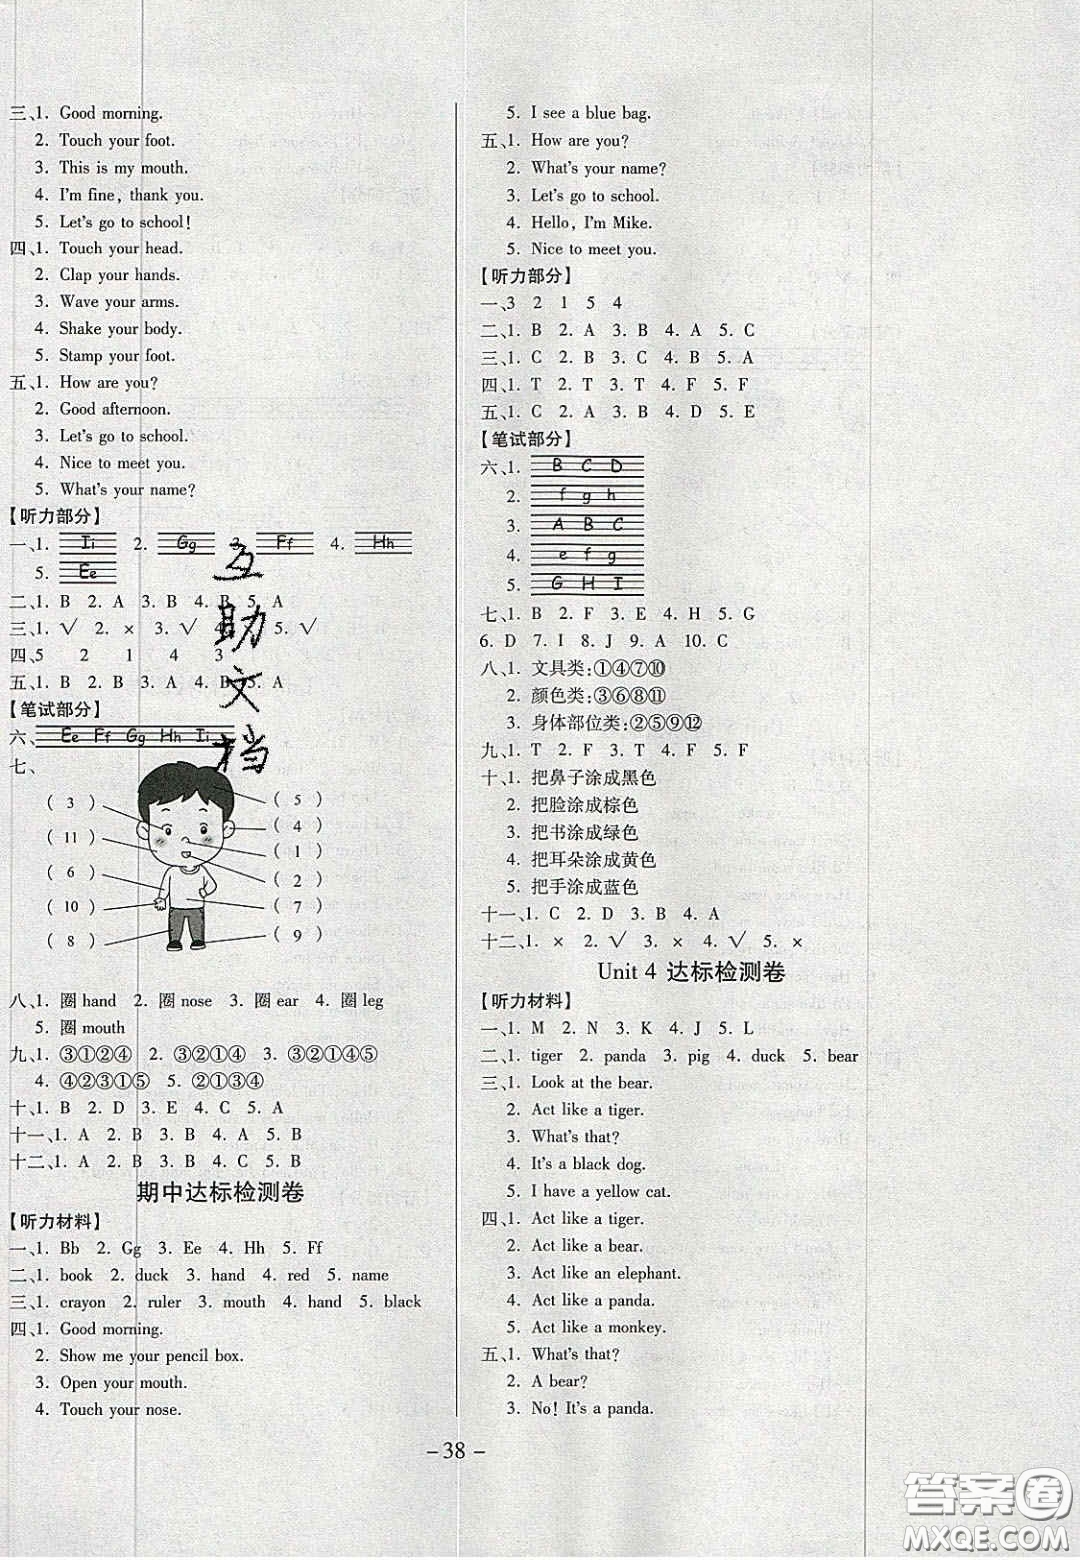 三、1. Good morning.
2. Touch your foot.
3. This is my mouth.
4. I'm fine, thank you.
5. Let's go to school!
四、1. Touch your head.
2. Clap your hands.
3. Wave your arms.
4. Shake your body.
5. Stamp your foot.
五、1. How are you?
2. Good afternoon.
3. Let's go to school.
4. Nice to meet you.
5. What's your name?
【听力部分】
一、1. Ii 2. Gg 3. Ff 4. Hh
5. Ee
二、1. B 2. A 3. B 4. B 5. A
三、1. √ 2. × 3. √ 4. × 5. √
四、5 2 1 4 3
五、1. B 2. A 3. A 4. B 5. A
【笔试部分】
六、Ee Ff Gg Hh Ii
七、
( 3 ) ( 5 )
( 11 ) ( 4 )
( 1 )
( 6 ) ( 2 )
( 10 ) ( 7 )
( 8 ) ( 9 )
八、1. 圈 hand 2. 圈 nose 3. 圈 ear 4. 圈 leg
5. 圈 mouth
九、1. ③①②④ 2. ③②①④ 3. ③②①④⑤
4. ④②③①⑤ 5. ②①③④
十、1. B 2. D 3. E 4. C 5. A
十一、1. A 2. B 3. B 4. A 5. B
十二、1. A 2. B 3. B 4. C 5. B
期中达标检测卷
【听力材料】
一、1. Bb 2. Gg 3. Ee 4. Hh 5. Ff
二、1. book 2. duck 3. hand 4. red 5. name
三、1. crayon 2. ruler 3. mouth 4. hand 5. black
四、1. Good morning.
2. Show me your pencil box.
3. Open your mouth.
4. Touch your nose.
5. I see a blue bag.
五、1. How are you?
2. What's your name?
3. Let's go to school.
4. Hello, I'm Mike.
5. Nice to meet you.
【听力部分】
一、3 2 1 5 4
二、1. B 2. A 3. B 4. A 5. C
三、1. C 2. B 3. C 4. B 5. A
四、1. T 2. T 3. T 4. F 5. F
五、1. C 2. A 3. B 4. D 5. E
【笔试部分】
六、1. B C D
2. f g h
3. A B C
4. e f g
5. G H I
七、1. B 2. F 3. E 4. H 5. G
6. D 7. I 8. J 9. A 10. C
八、1. 文具类:①④⑦⑩
2. 颜色类:③⑥⑧⑪
3. 身体部位类:②⑤⑨⑫
九、1. T 2. F 3. T 4. T 5. F
十、1. 把鼻子涂成黑色
2. 把脸涂成棕色
3. 把书涂成绿色
4. 把耳朵涂成黄色
5. 把手涂成蓝色
十一、1. C 2. D 3. B 4. A
十二、1. × 2. √ 3. × 4. √ 5. ×
Unit 4 达标检测卷
【听力材料】
一、1. M 2. N 3. K 4. J 5. L
二、1. tiger 2. panda 3. pig 4. duck 5. bear
三、1. Look at the bear.
2. Act like a tiger.
3. What's that?
4. It's a black dog.
5. I have a yellow cat.
四、1. Act like a tiger.
2. Act like a bear.
3. Act like an elephant.
4. Act like a panda.
5. Act like a monkey.
五、1. What's that?
2. A bear?
3. No! It's a panda.
- 38 -
互助文档
答案圈
MXQE.COM